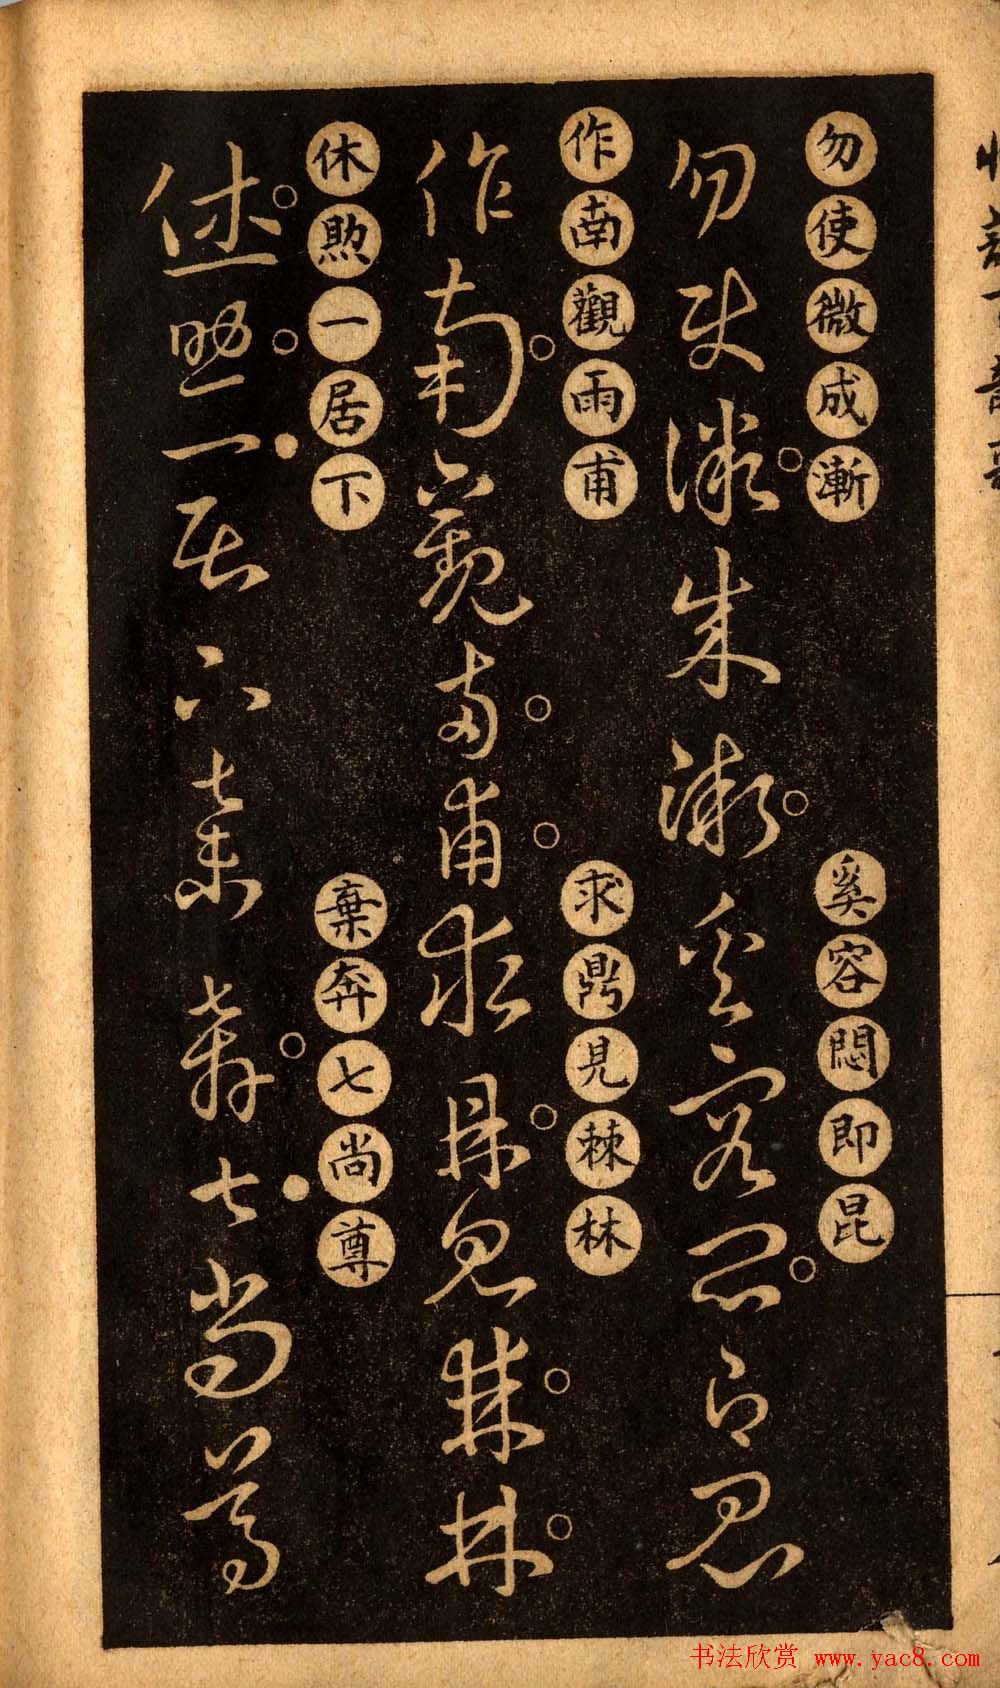 勿使微成漸
奚容悶即昆
勿使微成漸奚容悶即昆
作南觀雨甫
求鼎見棘林
作南觀雨甫求鼎見棘林
休煦一居下
棄奔七尚尊
休煦一居下棄奔七尚尊
书法欣赏 www.yac8.com